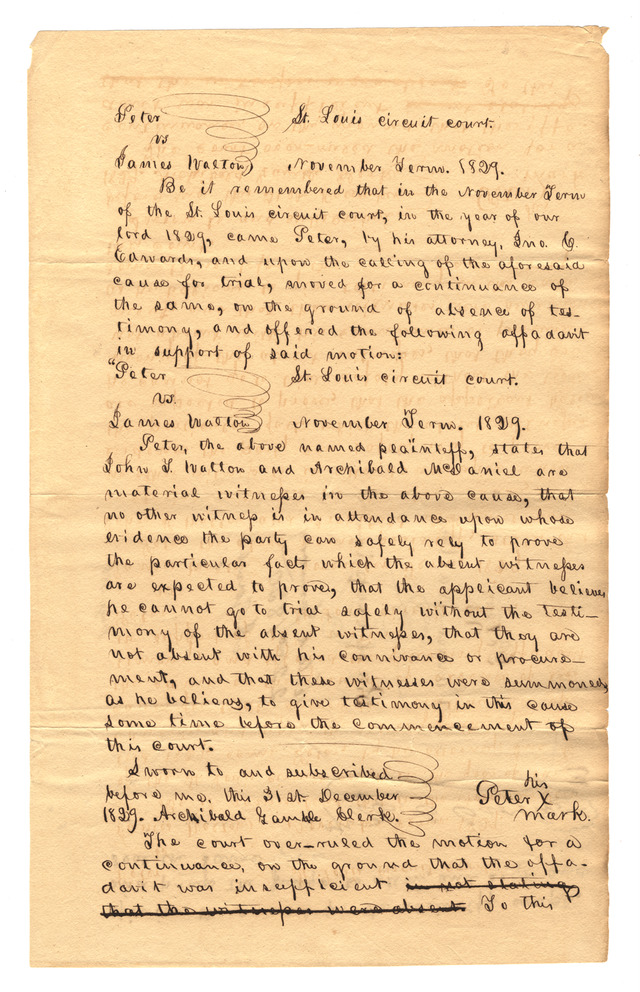 Peter St. Louis circuit court.
vs
James Walton) November Term. 1829.
Be it remembered that in the November Term
of the St. Louis circuit court, in the year of our
lord 1829, came Peter, by his attorney, Jno. C.
Edwards, and upon the calling of the aforesaid
cause for trial, moved for a continuance of
the same, on the ground of absence of tes-
timony, and offered the following affadavit
in support of said motion:
"Peter St. Louis circuit court.
vs.
James Walton November Term. 1829.
Peter, the above named plaintiff, states that
John S. Walton and Archibald McDaniel are
material witnesses in the above cause, that
no other witness is in attendance upon whose
evidence the party can safely rely to prove
the particular facts which the absent witnesses
are expected to prove, that the applicant believes
he cannot go to trial safely without the testi-
mony of the absent witnesses, that they are
not absent with his connivance or procure-
ment, and that these witnesses were summoned,
as he believes, to give testimony in this cause
some time before the commencement of
this court.
Sworn to and subscribed
before me, this 31st. December his
1829. Archibald Gamble Clerk. Peter X
mark.
The court over-ruled the motion for a
continuance, on the ground that the affa-
davit was insufficient in not stating
that the witnesses were absent. To this